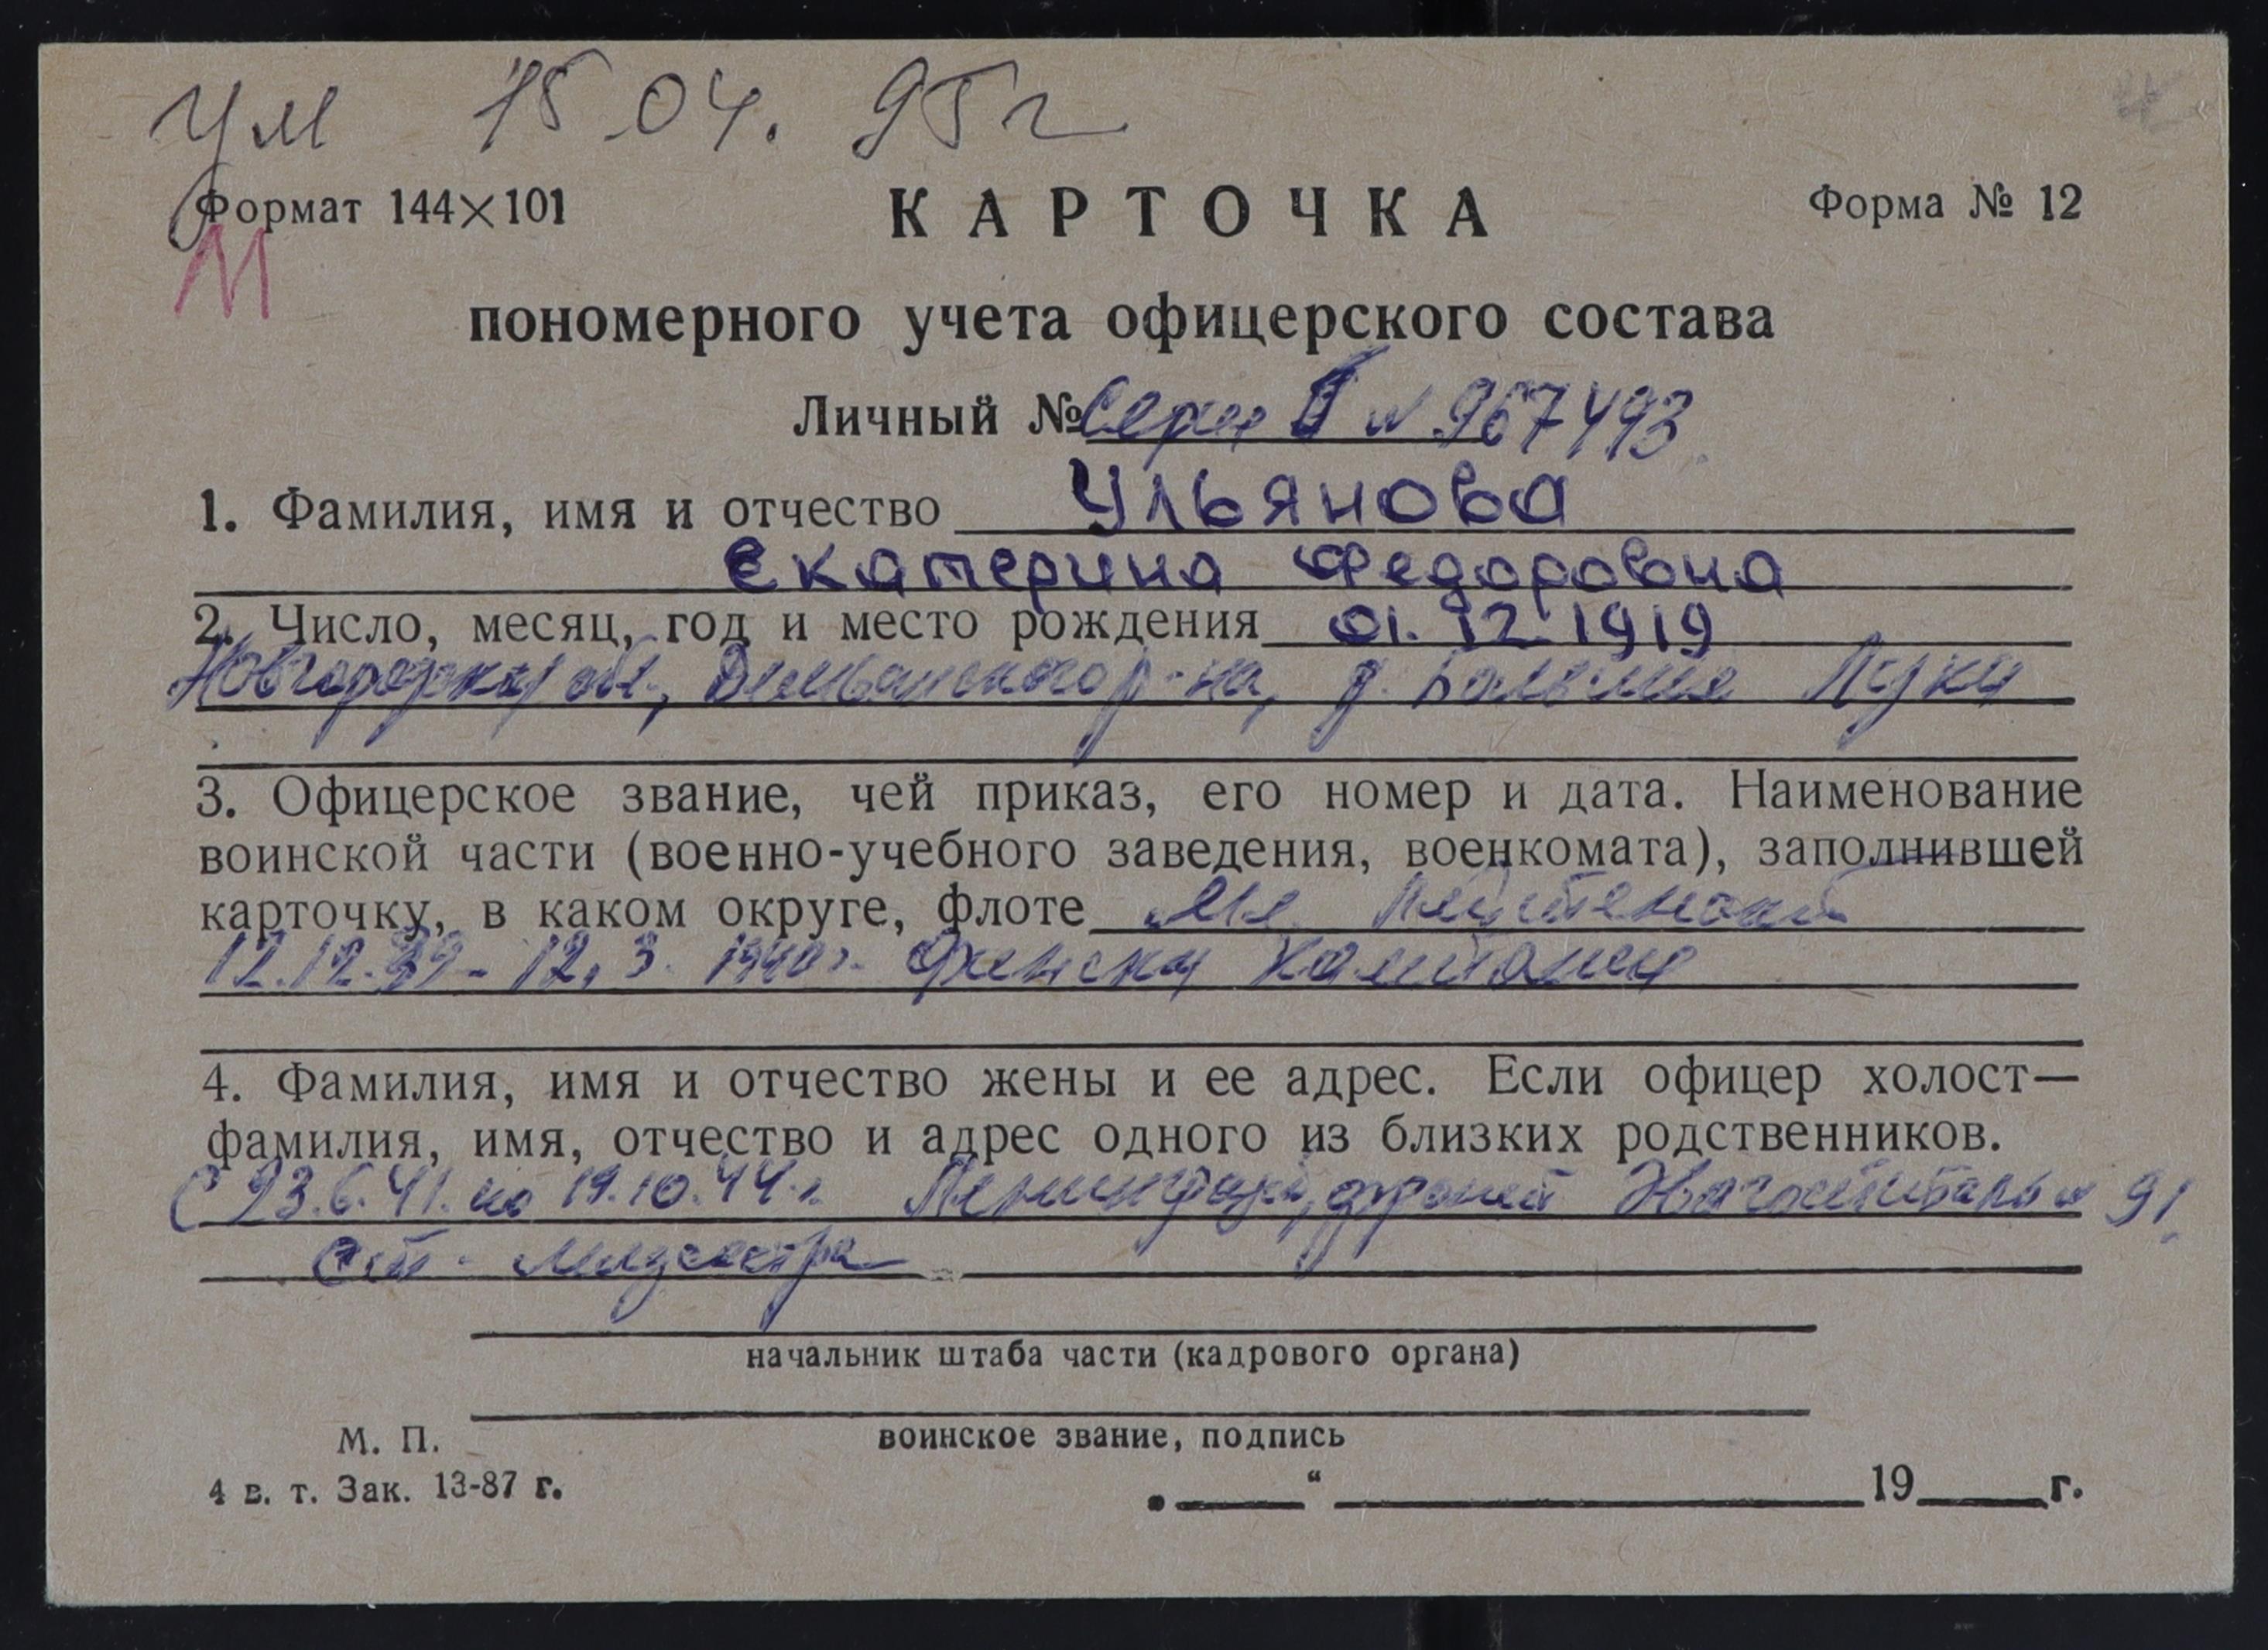 ум 15.04.95г
Формат 144×101 КАРТОЧКА Форма № 12
М
пономерного учета офицерского состава
Личный № Серия № 967493
1. Фамилия, имя и отчество Ульянова
Екатерина Федоровна
2. Число, месяц, год и место рождения 01.12.1919
Новгородская обл., р-на, д. Большие Луки
3. Офицерское звание, чей приказ, его номер и дата. Наименование
воинской части (военно-учебного заведения, военкомата), заполнившей
карточку, в каком округе, флоте Мл. Лейтенант
12.12.39 - 12.3.1940г. Финская Компания
4. Фамилия, имя и отчество жены и ее адрес. Если офицер холост—
фамилия, имя, отчество и адрес одного из близких родственников.
С 23.6.41. по 19.10.44 г. фронт Эвагоспиталь № 91
Ст. медсестра
начальник штаба части (кадрового органа)
воинское звание, подпись
М. П.
4 в. т. Зак. 13-87 г.
„ “ 19 г.